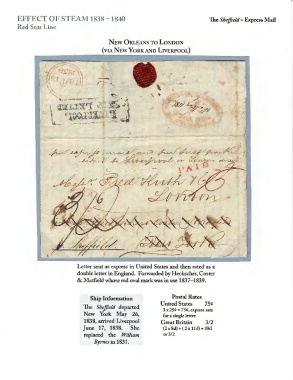 EFFECT OF STEAM 1838 – 1840
Red Star Line
The Sheffield – Express Mail
NEW ORLEANS TO LONDON
(VIA NEW YORK AND LIVERPOOL)
LIVERPOOL
PAID
Messrs Fred Huth & Co
London
Sheffield New York
Letter sent as express in United States and then rated as a
double letter in England. Forwarded by Heckscher, Coster
& Matfield whose red oval mark was in use 1837–1839.
Ship Information
The Sheffield departed
New York May 26,
1838, arrived Liverpool
June 17, 1838. She
replaced the William
Byrnes in 1831.
Postal Rates
United States 75¢
3 x 25¢ = 75¢, express rate
for a single letter.
Great Britain 3/2
(2 x 8d) + (2 x 11d) = 38d
or 3/2